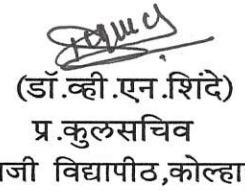 (डॉ.व्ही.एन.शिंदे)
प्र.कुलसचिव
जी विद्यापीठ,कोल्हा